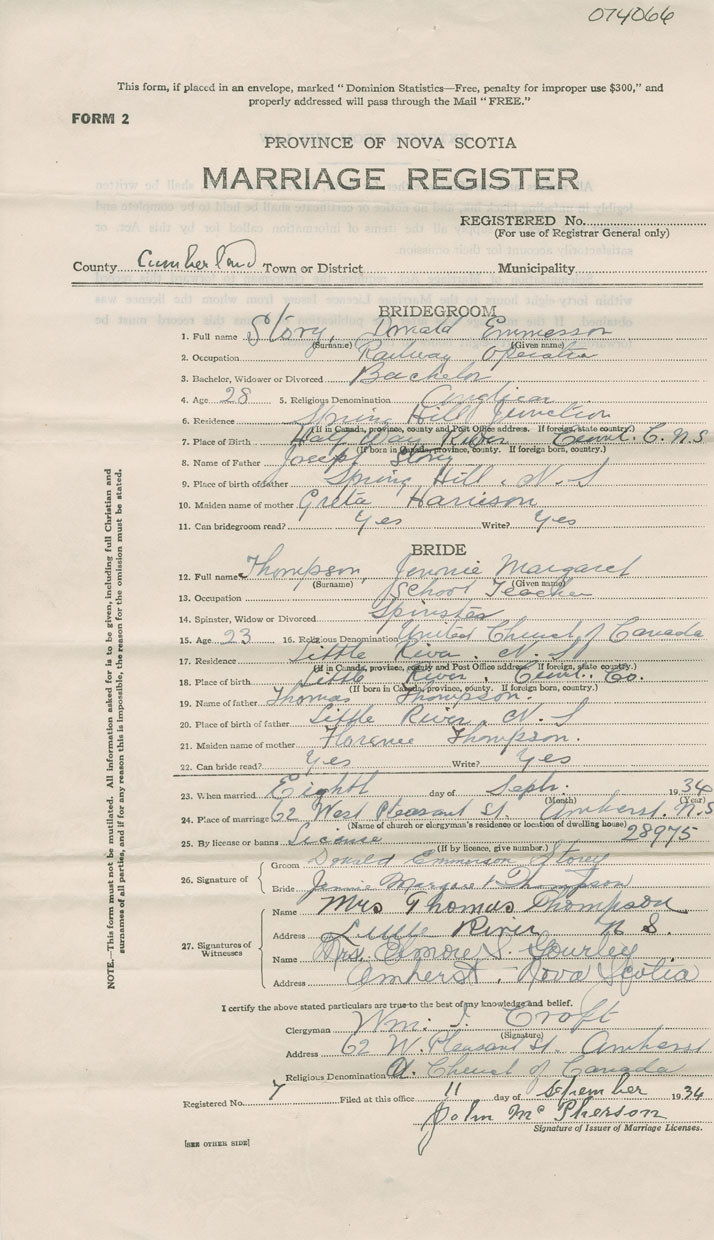 074066
This form, if placed in an envelope, marked "Dominion Statistics—Free, penalty for improper use $300," and
properly addressed will pass through the Mail "FREE."
FORM 2
PROVINCE OF NOVA SCOTIA
MARRIAGE REGISTER
REGISTERED No.
(For use of Registrar General only)
County Cumberland Town or District Municipality
BRIDEGROOM
1. Full name Story, Donald Emmerson
(Surname) (Given name)
2. Occupation Railway Operator
3. Bachelor, Widower or Divorced Bachelor
4. Age 28 5. Religious Denomination Anglican
6. Residence Spring Hill Junction
(If in Canada, province, county and Post Office address. If foreign, state country.)
7. Place of Birth Half Way River Cum. C. N.S
(If born in Canada, province, county. If foreign born, country.)
8. Name of Father Joseph Story
9. Place of birth of father Spring Hill, N.S
10. Maiden name of mother Greta Harrison
11. Can bridegroom read? Yes Write? Yes
BRIDE
12. Full name Thompson, Jennie Margaret
(Surname) (Given name)
13. Occupation School Teacher
14. Spinster, Widow or Divorced Spinster
15. Age 23 16. Religious Denomination United Church of Canada
17. Residence Little River, N.S
(If in Canada, province, county and Post Office address. If foreign, state country.)
18. Place of birth Little River, Cum. Co.
(If born in Canada, province, county. If foreign born, country.)
19. Name of father Thomas Thompson.
20. Place of birth of father Little River, N.S
21. Maiden name of mother Florence Thompson.
22. Can bride read? Yes Write? Yes
23. When married Eighth day of Sept. 1934
(Month) (Year)
24. Place of marriage 62 West Pleasant St. Amherst. N.S
(Name of church or clergyman's residence or location of dwelling house)
25. By license or banns License 28975
(If by licence, give number.)
26. Signature of
Groom Donald Emmerson Storey
Bride Jennie Margaret Thompson
27. Signatures of Witnesses
Name Mrs Thomas Thompson
Address Little River N S.
Name Mrs. Elmore S. Gourley
Address Amherst, Nova Scotia
I certify the above stated particulars are true to the best of my knowledge and belief.
Clergyman Wm. J. Croft
(Signature)
Address 62 W. Pleasant St. Amherst
Religious Denomination U. Church of Canada
Registered No. 7 Filed at this office 11 day of September 1934
John McPherson
Signature of Issuer of Marriage Licenses.
[SEE OTHER SIDE]
NOTE.—This form must not be mutilated. All information asked for is to be given, including full Christian and
surnames of all parties, and if for any reason this is impossible, the reason for the omission must be stated.